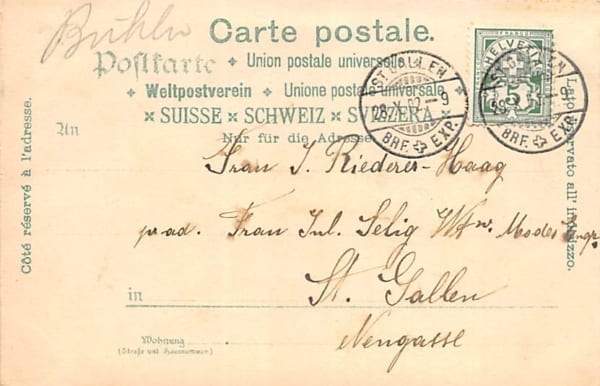 Bühler
Carte postale.
Postkarte + Union postale universelle
+ Weltpostverein + Unione postale universale
× SUISSE × SCHWEIZ × SVIZZERA ×
Nur für die Adresse.
ST. GALLEN
28.X.02.-9
BRF. EXP.
HELVETIA
FRANCO
5
ST. GALLEN
BRF. EXP.
Côté réservé à l'adresse.
Lato riservato all' indirizzo.
An
Frau J. Riederer-Haag
pad. Frau Jul. Selig Wtw.
in
St. Gallen
Neugasse
Wohnung
(Straße und Hausnummer)